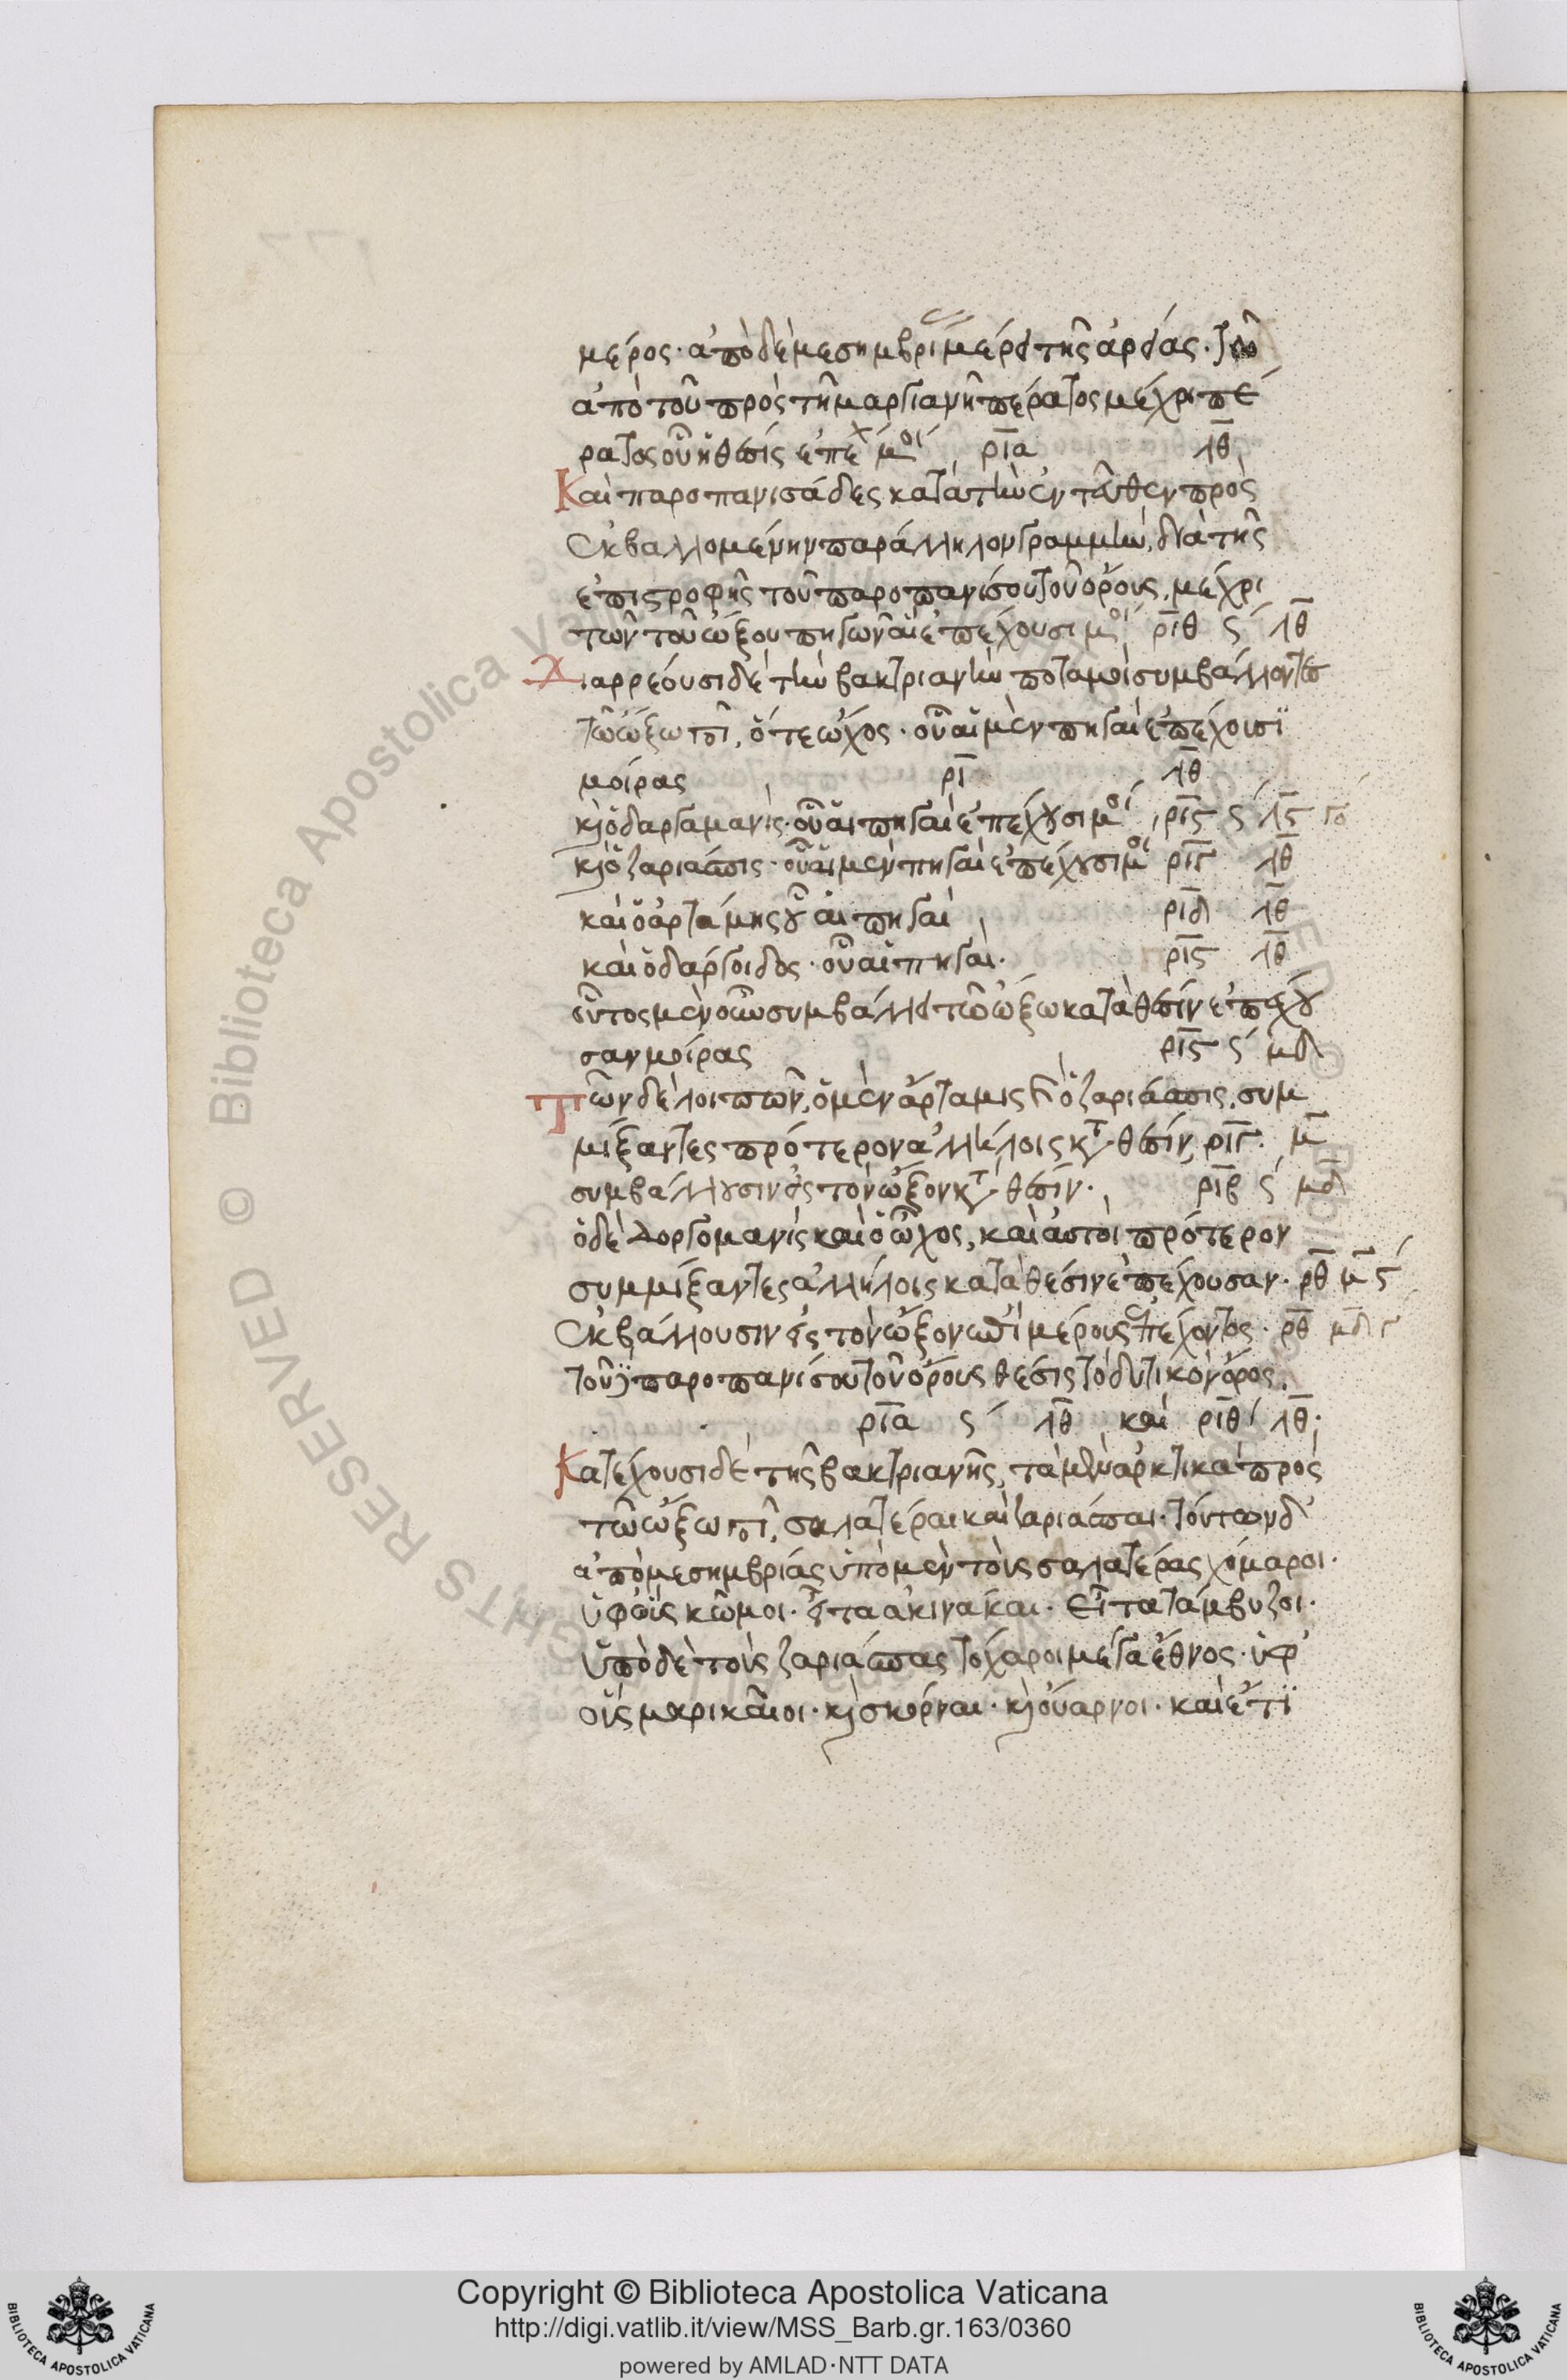 μέρος· ἀπὸ δὲ μεσημβρί μέρει τῆς ἀρείας. τῶ
ἀπὸ τοῦ πρὸς τῆ μαργιανῆ πέρατος μέχρι πέ
ρατος οὗ ἡ θέσις ἐπέχ μοί ριᾱ λθ̄
Καὶ παροπανισάδες κατὰ τὴν ἐντεῦθεν πρὸς
ἐκβαλλομένην παράλληλον γραμμὴν, διὰ τῆς
ἐπιστροφῆς τοῦ παροπανίσου τοῦ ὄρους, μέχρι
τῶν τοῦ ὤξου πηγῶν αἳ ἐπέχουσι μοί ριθ ϛ΄ λθ̄
Διαρρέουσι δὲ τὴν βακτριανὴν ποταμοὶ συμβάλλοντες
τῶ ὤξω ποτ, ὅ τε ὦχος· οὗ αἱ μὲν πηγαὶ ἐπέχουσι
μοίρας ρῑ λθ̄
κὶ ὁ δαργαμανίς· οὗ αἱ πηγαὶ ἐπέχουσι μοί ριϛ ϛ΄ λϛ γο
κὶ ὁ ζαριάσπις· οὗ αἱ μὲν πηγαὶ ἐπέχουσι μοί ριγ λθ̄
καὶ ὁ ἀρτάμης οὗ αἱ πηγαὶ ριδ λθ̄
καὶ ὁ δαργοιδος· οὗ αἱ πηγαί· ριϛ λθ̄
οὗτος μὲν οὖν συμβάλλει τῶ ὤξω κατὰ θέσιν ἐπέχου
σαν μοίρας ριϛ ϛ΄ μδ
Τῶν δὲ λοιπῶν, ὁ μὲν ἄρταμις κ ὁ ζαριάσπις, συμ
μίξαντες πρότερον ἀλλήλοις κτ θέσιν, ριγ. μ̄
συμβάλλουσιν εἰς τὸν ὦξον κτ θέσιν· ριβ ϛ΄ μδ
ὁ δὲ δοργομανίς καὶ ὁ ὦχος, καὶ αὐτοὶ πρότερον
συμμίξαντες ἀλλήλοις κατὰ θέσιν ἐπέχουσαν· ρθ μ̄ ϛ΄
Ἐκβάλλουσιν εἰς τὸν ὦξον ἐπὶ μέρους ἐπέχοντος· ρθ μδ γ
τοῦ παροπανίσου τοῦ ὄρους θέσις τὸ δυτικὸν ὄρος.
ριᾱ ϛ΄ λθ̄ καὶ ριθ΄ λθ̄·
Κατέχουσι δὲ τῆς βακτριανῆς, τὰ μὲν ἀρκτικὰ πρὸς
τῶ ὤξω ποτ, σαλατέραι καὶ ζαριάσπαι· τούτων δ'
ἀπὸ μεσημβρίας ὑπὸ μὲν τοὺς σαλατέρας χόμαροι·
ὑφ' οἷς κῶμοι· εἶτα ἀκινάκαι· εἶτα τάμβυζοι·
Ὑπὸ δὲ τοὺς ζαριάσπας τοχάροι μέγα ἔθνος· ὑφ'
οἷς μαρικαῖοι· κὶ σκόρναι· κὶ οὔαρνοι· καὶ ἔτι
Copyright © Biblioteca Apostolica Vaticana
http://digi.vatlib.it/view/MSS_Barb.gr.163/0360
powered by AMLAD·NTT DATA